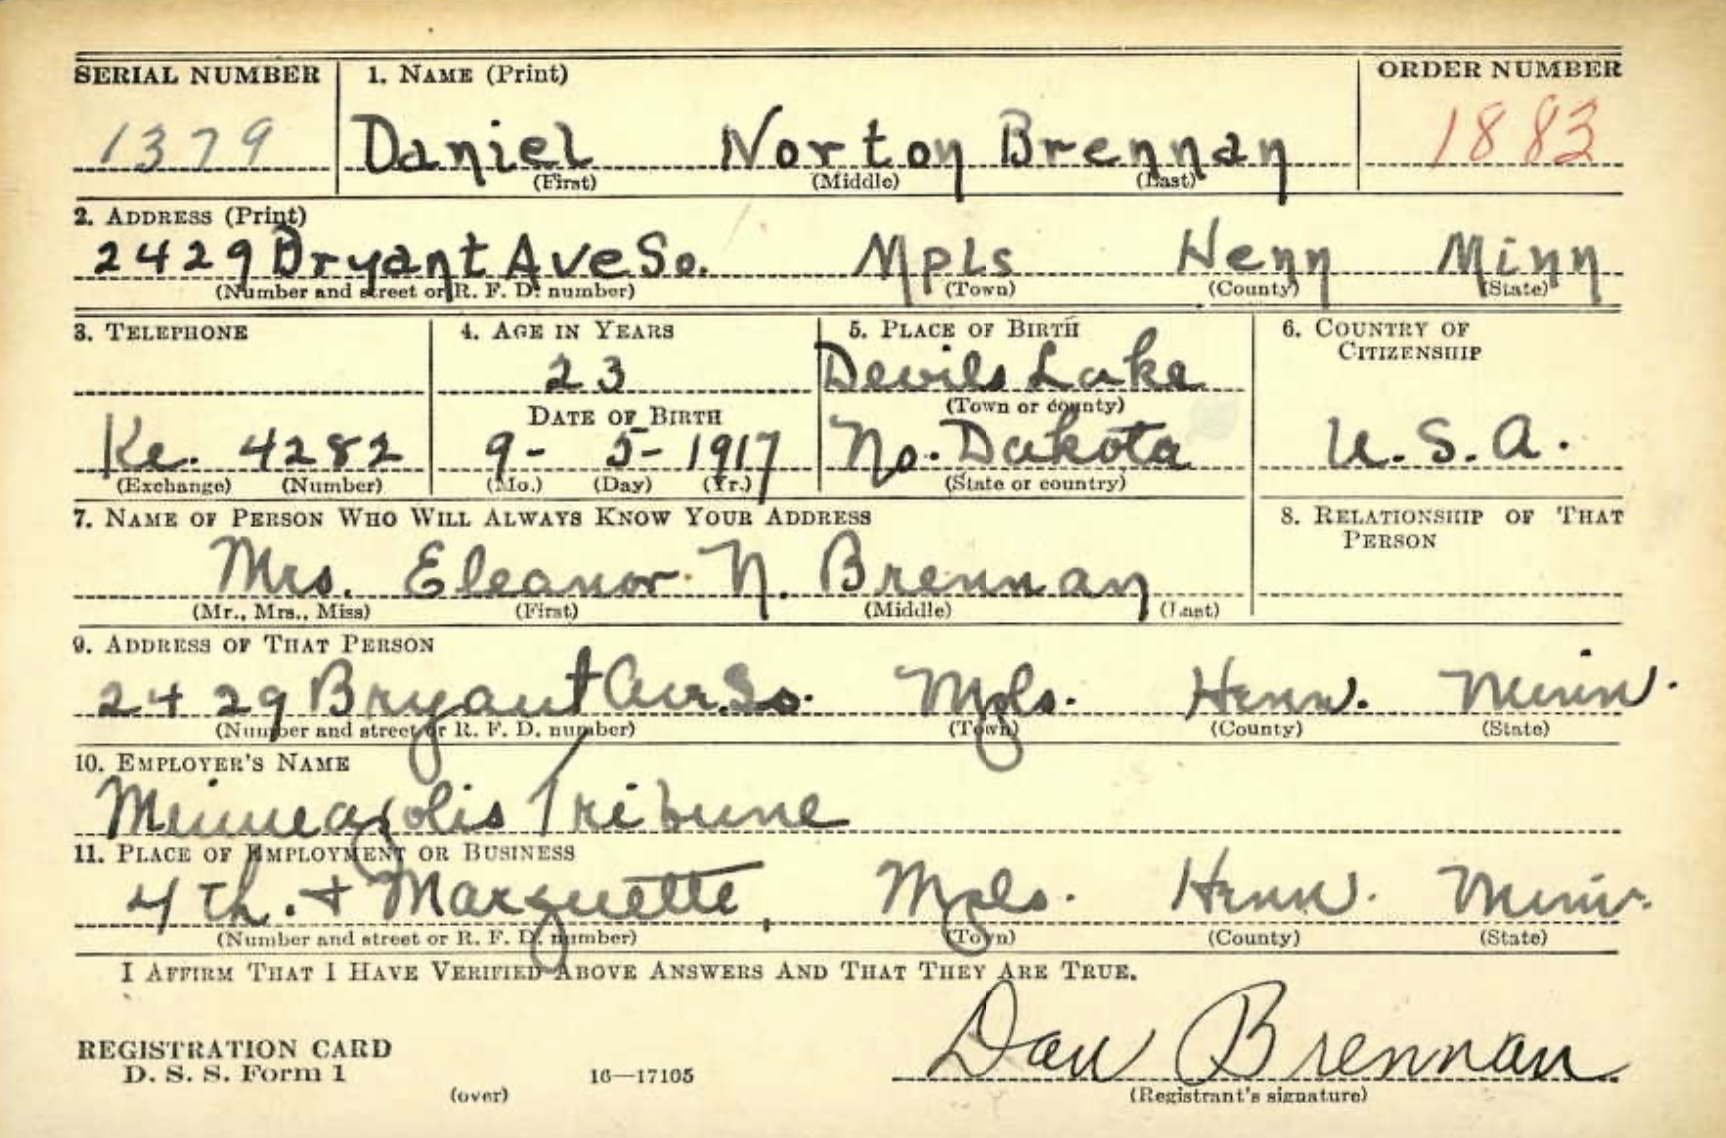 SERIAL NUMBER 1. NAME (Print) ORDER NUMBER
1379 Daniel Norton Brennan 1883
(First) (Middle) (Last)
2. ADDRESS (Print)
2429 Bryant Ave So. Mpls Henn Minn
(Number and street or R. F. D. number) (Town) (County) (State)
3. TELEPHONE 4. AGE IN YEARS 5. PLACE OF BIRTH 6. COUNTRY OF
CITIZENSHIP
23 Devils Lake
DATE OF BIRTH (Town or county)
Ke. 4282 9- 5- 1917 No. Dakota U.S.A.
(Exchange) (Number) (Mo.) (Day) (Yr.) (State or country)
7. NAME OF PERSON WHO WILL ALWAYS KNOW YOUR ADDRESS 8. RELATIONSHIP OF THAT
PERSON
Mrs. Eleanor N. Brennan
(Mr., Mrs., Miss) (First) (Middle) (Last)
9. ADDRESS OF THAT PERSON
2429 Bryant Ave. So. Mpls. Henn. Minn.
(Number and street or R. F. D. number) (Town) (County) (State)
10. EMPLOYER'S NAME
Minneapolis Tribune
11. PLACE OF EMPLOYMENT OR BUSINESS
4th. + Marquette, Mpls. Henn. Minn.
(Number and street or R. F. D. number) (Town) (County) (State)
I AFFIRM THAT I HAVE VERIFIED ABOVE ANSWERS AND THAT THEY ARE TRUE.
Dan Brennan
REGISTRATION CARD
D. S. S. Form 1 16—17105
(over) (Registrant's signature)